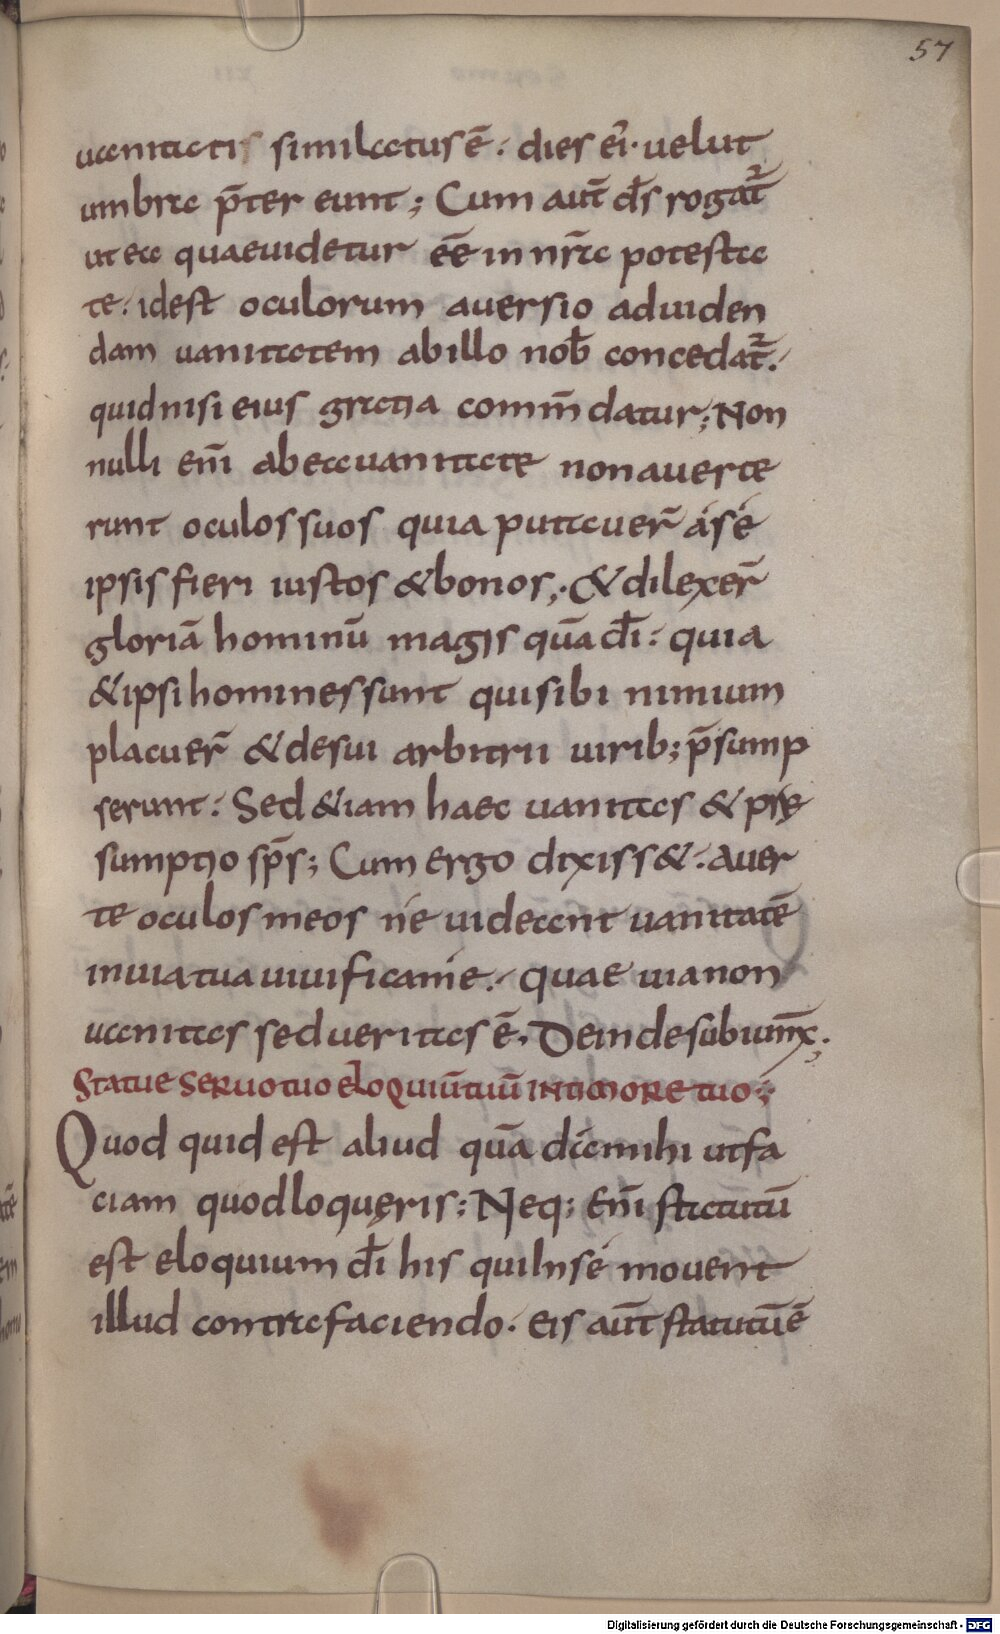 57
uanitatis similatus ē. dies ei᷒. uelut
umbra p̄ter eunt; Cum aut̄ d̄s rogat᷒
ut ea quae uidetur eē in nr̄a potesta
te. idest oculorum auersio ad uiden
dam uanitatem ab illo nob̄ concedat᷒.
quid nisi eius gratia comm̄datur; Non
nulli em̄ ab ea uanitate non auerte
runt oculos suos quia putauer̄ á sé
ipsis fieri iustos & bonos; & dilexer̄
gloriā hominū magis quā dī. quia
& ipsi homines sunt qui sibi nimium
placuer̄ & de sui arbitrii uirib; p̄sump
serunt. Sed & iam haec uanitas & prę
sumptio sp̄s; Cum ergo dixiss&. auer
te oculos meos né uideant uanitatē
in uia tua uiuifica mé. quae uia non
uanitas sed ueritas ē. Deinde subiunx̄;
Statue seruo tuo eloquiū tuū in timore tuo;
Quod quid est aliud quā da mihi ut fa
ciam quod loquęris; Neq; em̄ statutū
est eloquium dī his qui In sé mouent
illud contra faciendo. eis aut̄ statutū ē
Digitalisierung gefördert durch die Deutsche Forschungsgemeinschaft - DFG